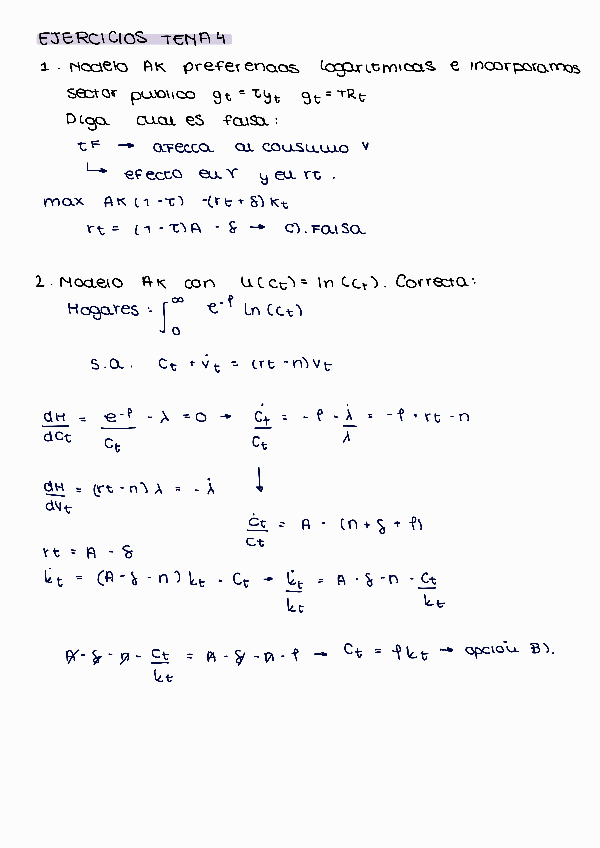 EJERCICIOS TEMA 4
1. Modelo AK preferencias logaritmicas e incorporamos
sector publico gt = τyt gt = TRt
Diga cual es falsa:
→ afecta al consumo
↳ efecto en Y y en rt.
max AK(1-τ) -(rt + δ)Kt
rt = (1-τ)A - δ → C). Falsa
2. Modelo AK con U(Ct) = ln(Ct). Correcta:
Hogares: ∫₀^∞ e^-ρ ln(Ct)
s.a. Ct + v̇t = (rt - n)Vt
dH/dCt = e^-ρ/Ct - λ = 0 → Ċt/Ct = -ρ - λ̇/λ = -ρ + rt - n
dH/dVt = (rt - n)λ = -λ̇ ↓
Ċt/Ct = A - (n + δ + ρ)
rt = A - δ
k̇t = (A - δ - n)kt - Ct → k̇t/kt = A - δ - n - Ct/kt
A - δ - n - Ct/kt = A - δ - n - ρ → Ct = ρkt → opción B).